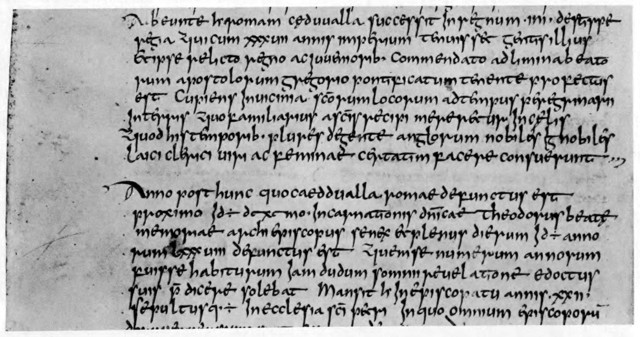 Abeunte h romam ceduualla successit in regnum · ini · de stirpe
regia Qui cum xxxuii annis imperium tenuisset gentis illius
et ipse relicto regno ac iuuenioribꞏ commendato ad limina beato
rum apostolorum gregorio pontificatum tenente profectus
est Cupiens in uicinia scōrum locorum ad tempus peregrinari
in terris quo familiarius a scīs recipi mereretur in celis
quod his temporibꞏ plures de gente anglorum nobiles ignobiles
laici clerici uiri ac feminae certatim facere consuerunt
Anno post hunc quo caeddualla romae defunctus est
proximo id ÷ dcxcmo incarnationis dn̄icae theodorus beatae
memoriae archiepiscopus senex et plenus dierum id ÷ anno
rum defunctus est Quem se numerum annorum
fuisse habiturum iam dudum somni reuelatione edoctus
suis p̄dicere solebat Mansit h in episcopatu annis · xxii ·
sepultusq· ÷ in ecclesia scī petri in quo omnium episcoporū